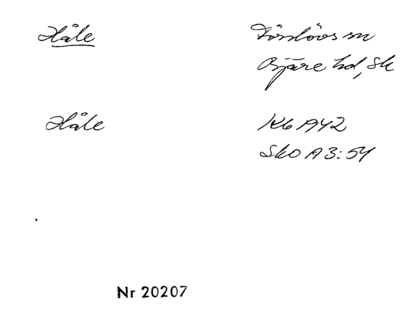 Håle
Förslövs sn
Bjäre hd, Sk
Håle
Kb 1942
SkO A3:54
Nr 20207